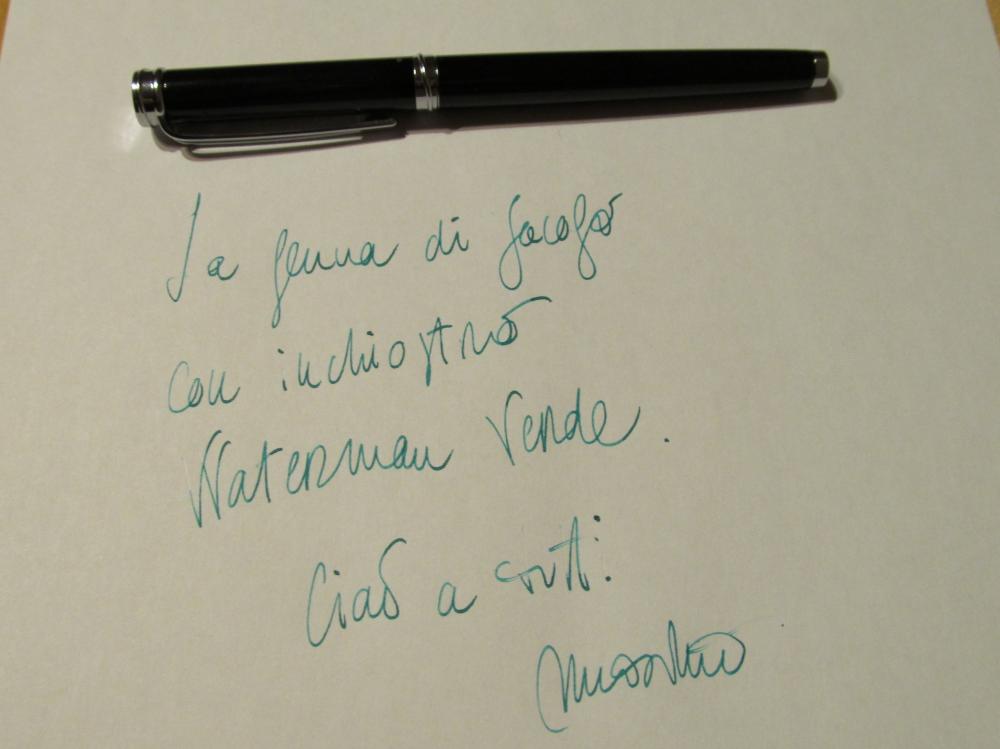 La penna di Jacopo
con inchiostro
Waterman Verde.
Ciao a tutti